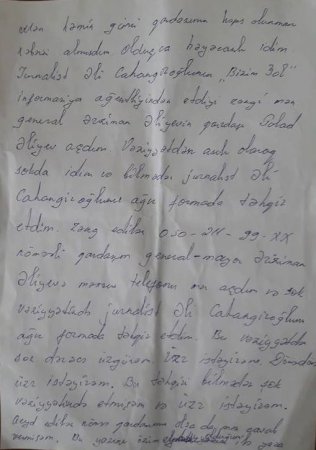 Mən həmin günü qardaşımın həps olunması
xəbəri almışdım. Olduqca həyəcanlı idim
Jurnalist Əli Cahangiroğlunun "Bizim Yol"
informasiya agentliyindən etdiyi zəngi mən
general Ərziman Əliyevin qardaşı Polad
Əliyev açdım. Vəziyyətdən asılı olaraq
şokda idim və bilmədən jurnalist Əli
Cahangiroğlunu ağır formada təhqir
etdim. Zəng edilən 050-211-99-XX
nömrəli qardaşım general-mayor Ərziman
Əliyevə məxsus telefonu mən açdım və şok
vəziyyətində jurnalist Əli Cahangiroğlunu
ağır formada təhqir etdim. Bu vəziyyətə
son dərəcə üzgünəm üzr istəyirəm. Dönədönə
üzr istəyirəm. Bu təhqiri bilmədən şok
vəziyyətində etmişəm və üzr istəyirəm.
Qeyd edilən nömrə qardaşımın olsa da mən cavab
vermişəm. Bu